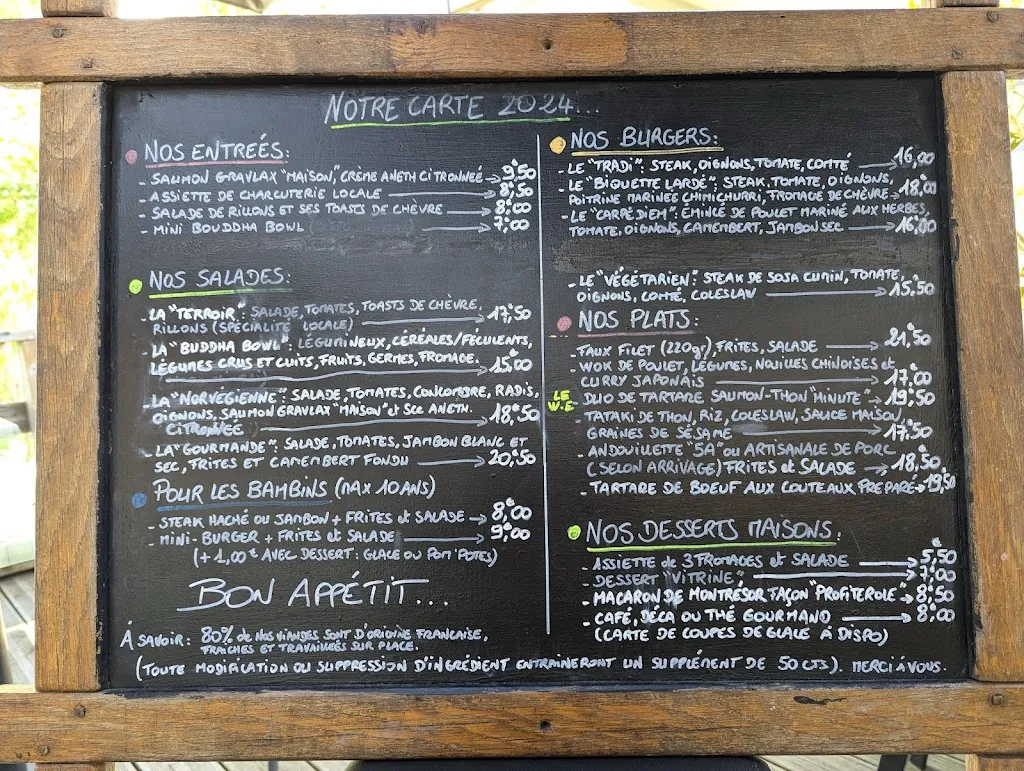 NOTRE CARTE 2024...
NOS ENTREÉS:
- SAUMON GRAVLAX "MAISON", CRÈME ANETH CITRONNEÉ → 9,50
- ASSIETTE DE CHARCUTERIE LOCALE → 8,50
- SALADE DE RILLONS ET SES TOASTS DE CHÈVRE → 8,00
- MINI BOUDDHA BOWL → 7,00
NOS SALADES:
- LA "TERROIR": SALADE, TOMATES, TOASTS DE CHÈVRE,
RILLONS (SPÉCIALITÉ LOCALE) → 17,50
LA "BUDDHA BOWL": LÉGUMINEUX, CÉRÉALES/FÉCULENTS,
LÉGUMES CRUS ET CUITS, FRUITS, GERMES, FROMAGE. → 15,00
- LA "NORVÉGIENNE": SALADE, TOMATES, CONCOMBRE, RADIS,
OIGNONS, SAUMON GRAVLAX "MAISON" et SCE ANETH
CITRONNÉE → 18,50
- LA "GOURMANDE": SALADE, TOMATES, JAMBON BLANC ET
SEC, FRITES ET CAMEMBERT FONDU → 20,50
POUR LES BAMBINS (MAX 10 ANS)
- STEAK HACHÉ OU JAMBON + FRITES et SALADE → 8,00
- MINI-BURGER + FRITES et SALADE → 9,00
(+ 1,00€ AVEC DESSERT: GLACE OU POM'POTES)
BON APPÉTIT...
À SAVOIR: 80% de NOS VIANDES SONT D'ORIGINE FRANÇAISE,
FRAÎCHES ET TRAVAILLÉES SUR PLACE.
NOS BURGERS:
- LE "TRADI": STEAK, OIGNONS, TOMATE, COMTÉ → 16,00
- LE "BIQUETTE LARDÉ": STEAK, TOMATE, OIGNONS,
POITRINE MARINÉE CHIMICHURRI, FROMAGE DE CHÈVRE → 18,00
- LE "CARPÉ DIEM": ÉMINCÉ DE POULET MARINÉ AUX HERBES,
TOMATE, OIGNONS, CAMEMBERT, JAMBON SEC → 16,00
- LE "VÉGÉTARIEN": STEAK DE SOJA CUMIN, TOMATE,
OIGNONS, COMTÉ, COLESLAW → 15,50
NOS PLATS:
- FAUX FILET (220gr), FRITES, SALADE → 21,50
- WOK DE POULET, LÉGUMES, NOUILLES CHINOISES et
CURRY JAPONAIS → 17,00
LE W.E - DUO DE TARTARE SAUMON-THON "MINUTE" → 19,50
- TATAKI DE THON, RIZ, COLESLAW, SAUCE MAISON,
GRAINES DE SÉSAME → 17,50
- ANDOUILLETTE "5A" OU ARTISANALE DE PORC
(SELON ARRIVAGE) FRITES et SALADE → 18,50
- TARTARE DE BOEUF AUX COUTEAUX PRÉPARÉ → 19,50
NOS DESSERTS MAISONS:
- ASSIETTE de 3 FROMAGES et SALADE → 5,50
- DESSERT "VITRINE" → 7,00
- MACARON DE MONTRÉSOR FAÇON "PROFITEROLE" → 8,50
- CAFÉ, DÉCA OU THÉ GOURMAND → 8,00
(CARTE DE COUPES DE GLACE À DISPO)
(TOUTE MODIFICATION OU SUPPRESSION D'INGRÉDIENT ENTRAINERONT UN SUPPLÉMENT DE 50 CTS). MERCI À VOUS.